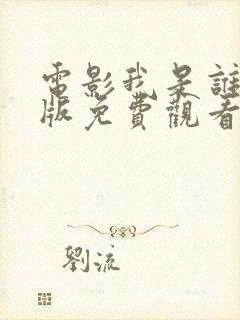 電影我是誰
版免費觀看
劉流